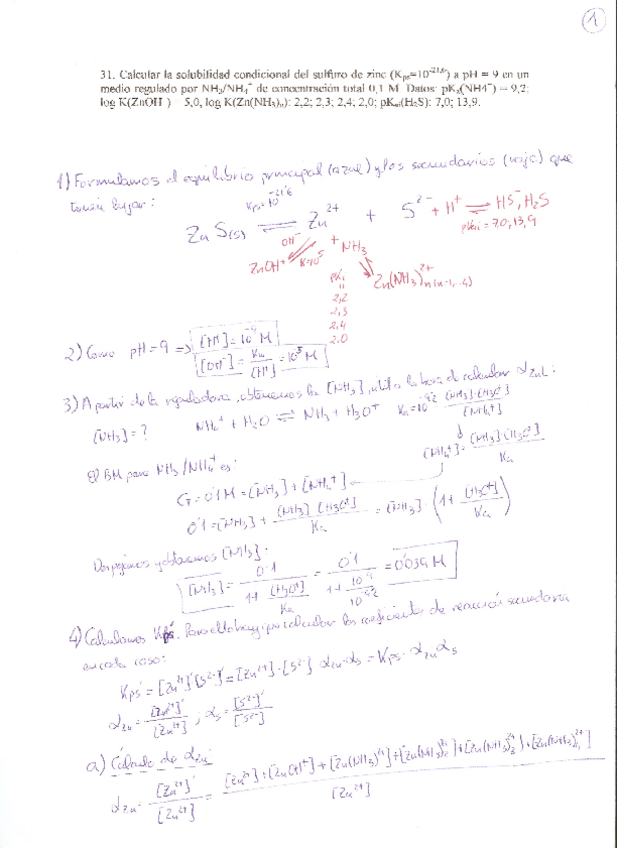 1
31. Calcular la solubilidad condicional del sulfuro de zinc (Kps=10^-21,6) a pH = 9 en un
medio regulado por NH3/NH4+ de concentración total 0,1 M. Datos: pKa(NH4+) = 9,2;
log K(ZnOH+) = 5,0, log K(Zn(NH3)n): 2,2; 2,3; 2,4; 2,0; pKai(H2S): 7,0; 13,9.
1) Formulamos el equilibrio principal (azul) y los secundarios (rojo) que
tienen lugar:
Kps = 10^-21'6
ZnS(s) ⇌ Zn2+ + S2- + H+ ⇌ HS-, H2S
OH- + NH3 pKai = 7.0; 13,9
ZnOH+ K=10^5 Zn(NH3)n2+ (n=1,..4)
pKi
=
2,2
2,3
2,4
2.0
2) Como pH = 9 => [H+] = 10^-9 M
[OH-] = Kw/[H+] = 10^-5 M
3) A partir de la reguladora, obtenemos la [NH3], a la hora de calcular αZn:
[NH3] = ? NH4+ + H2O ⇌ NH3 + H3O+ Ka = 10^-9.2 = [NH3]·[H3O+]/[NH4+]
[NH4+] = [NH3]·[H3O+]/Ka
El BM para NH3/NH4+ es:
CT = 0'1 M = [NH3] + [NH4+]
0'1 = [NH3] + [NH3]·[H3O+]/Ka = [NH3]·(1 + [H3O+]/Ka)
Despejamos y obtenemos [NH3]:
[NH3] = 0'1/(1 + [H3O+]/Ka) = 0'1/(1 + 10^-9/10^-9.2) = 0'039 M
4) Calculamos Kps'. Para ello hay que calcular los coeficientes de reacción secundaria
en cada caso:
Kps' = [Zn2+]'[S2-]' = [Zn2+]·[S2-] αZn·αS = Kps·αZn αS
αZn = [Zn2+]'/[Zn2+] ; αS = [S2-]'/[S2-]
a) Cálculo de αZn:
αZn = [Zn2+]'/[Zn2+] = ([Zn2+] + [ZnOH+] + [Zn(NH3)2+] + [Zn(NH3)2 2+] + [Zn(NH3)3 2+] + [Zn(NH3)4 2+])/[Zn2+]